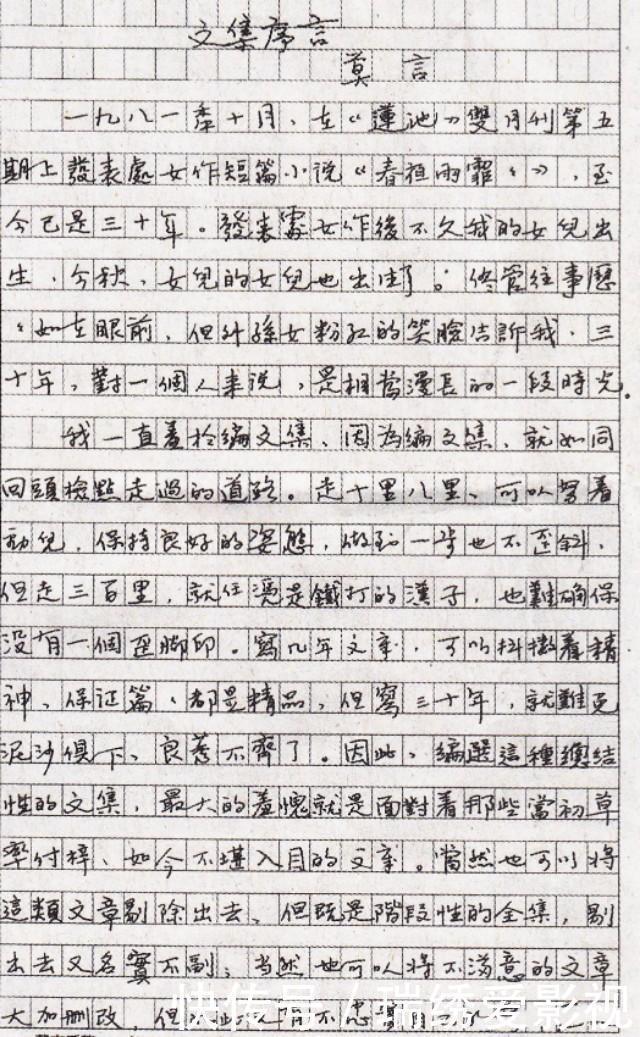 文集序言
莫言
一九八一季十月、在《蓮池》雙月刊第五
期上發表處女作短篇小说《春夜雨霏〻》，至
今已是三十年。發表處女作後不久我的女兒出
生，今秋，女兒的女兒也出生了。儘管往事歷
〻如在眼前，但外孫女粉红的笑臉告訴我，三
十年，對一個人来说，是相當漫長的一段時光。
我一直羞於編文集，因為編文集，就如同
回頭檢點走過的道路。走十里八里，可以努着
劲兒，保持良好的姿態，做到一步也不歪斜，
但走三百里，就任憑是鐵打的漢子，也難确保
没有一個歪脚印。寫几年文章，可以抖擻着精
神，保证篇〻都是精品，但寫三十年，就難免
泥沙俱下，良莠不齊了。因此，編選這種總结
性的文集，最大的羞愧就是面對着那些當初草
率付梓、如今不堪入目的文章。當然也可以将
這類文章剔除出去，但既是階段性的全集，剔
出去又名實不副；当然也可以将不满意的文章
大加删改，但 不忠
快传号/瑞绣爱影视